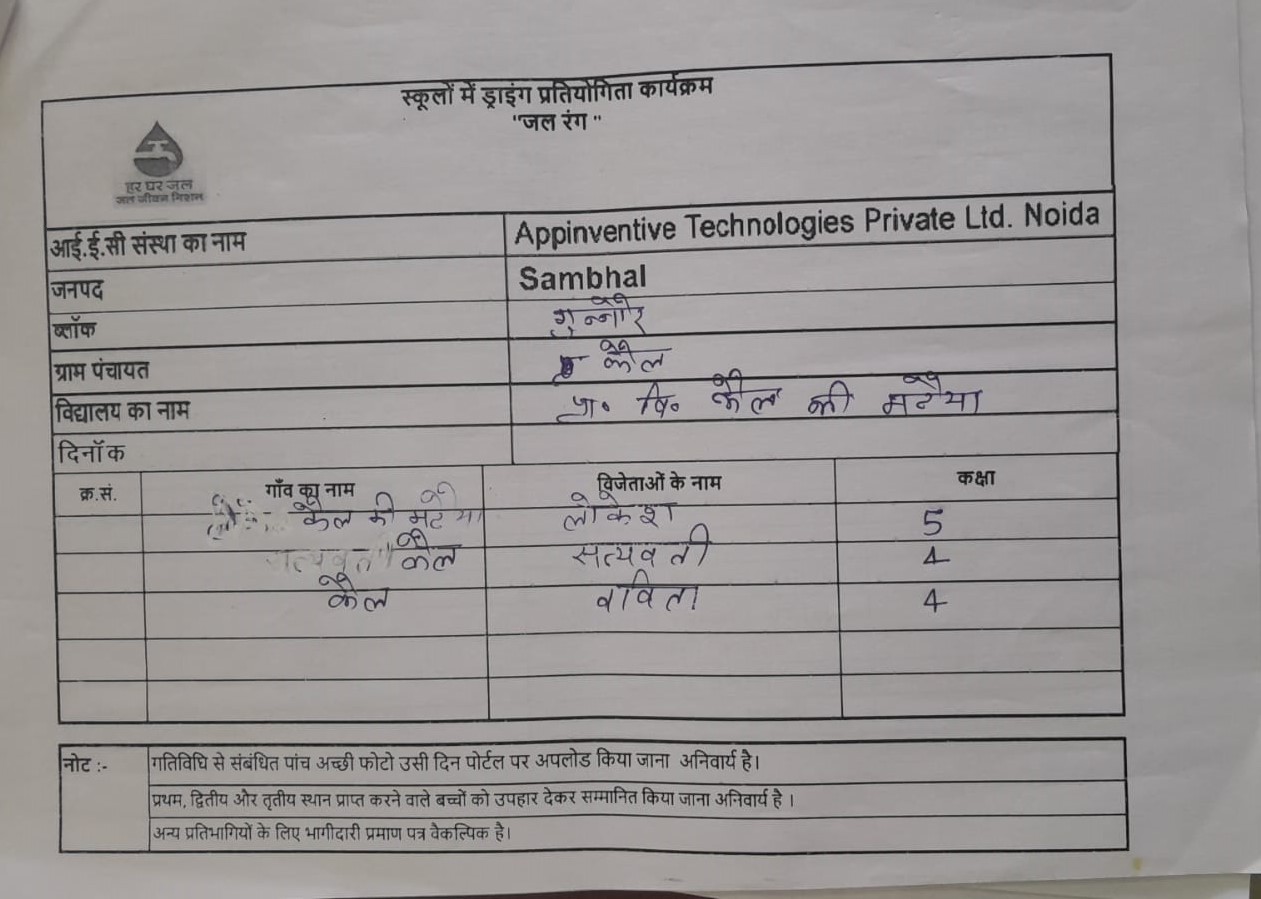 स्कूलों में ड्राइंग प्रतियोगिता कार्यक्रम
"जल रंग "
हर घर जल
जल जीवन मिशन
आई.ई.सी संस्था का नाम Appinventive Technologies Private Ltd. Noida
जनपद Sambhal
ब्लॉक गुन्नौर
ग्राम पंचायत कैल
विद्यालय का नाम प्रा० वि० कैल की मटैया
दिनॉक
क्र.सं. गाँव का नाम विजेताओं के नाम कक्षा
कैल की मटैया लोकेश 5
कैल सत्यवती 4
कैल 4
नोट :- गतिविधि से संबंधित पांच अच्छी फोटो उसी दिन पोर्टल पर अपलोड किया जाना अनिवार्य है।
प्रथम, द्वितीय और तृतीय स्थान प्राप्त करने वाले बच्चों को उपहार देकर सम्मानित किया जाना अनिवार्य है ।
अन्य प्रतिभागियों के लिए भागीदारी प्रमाण पत्र वैकल्पिक है।